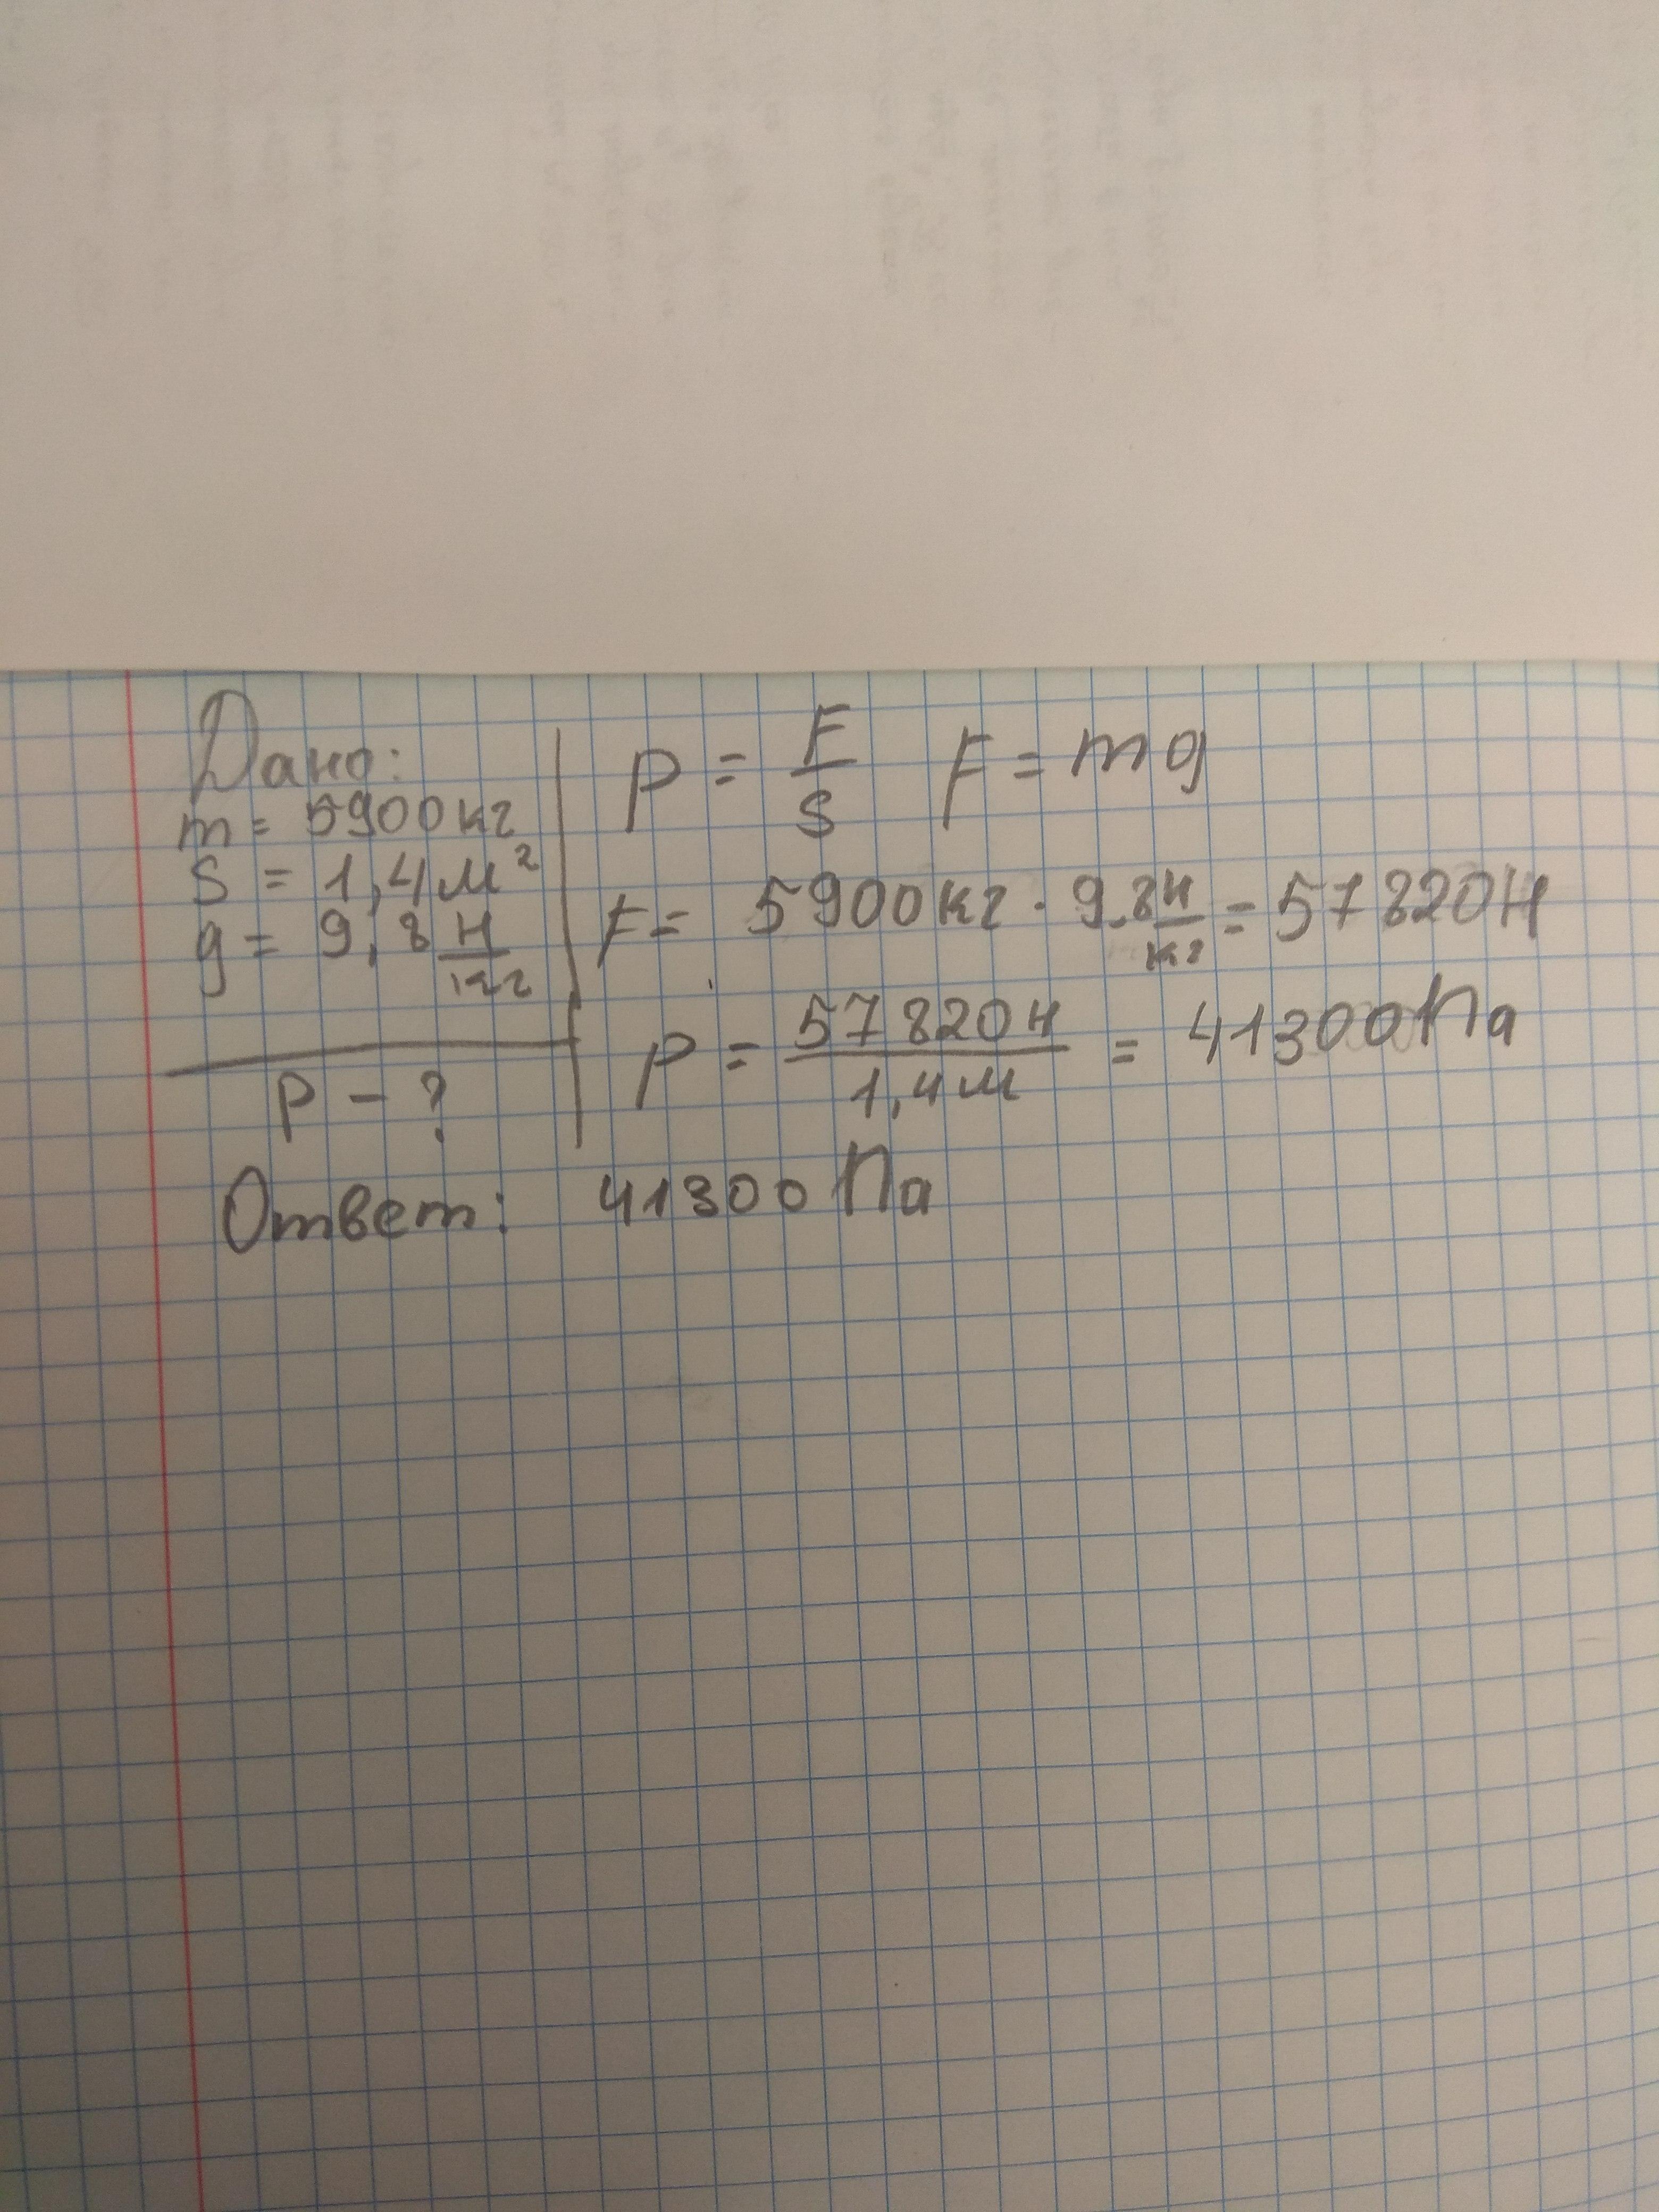 Дано:
m = 5900 кг
S = 1,4 м²
g = 9,8 Н/кг
P - ?
P = F/S F = mg
F = 5900 кг · 9.8 Н/кг = 57820 Н
P = 57820 Н/1,4 м = 41300 Па
Ответ: 41300 Па